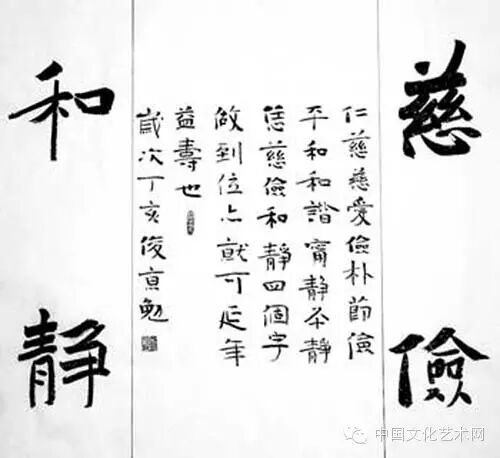 慈儉
仁慈慈愛儉朴節儉
平和和諧甯靜静
恁慈儉和靜四個字
做到位就可延年
益壽也
歲次丁亥俊勉
和静
中国文化艺术网